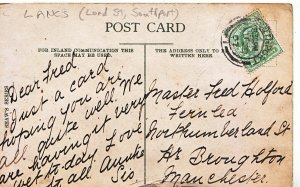 LANCS (Lord St, Southport)
POST CARD
FOR INLAND COMMUNICATION THIS
SPACE MAY BE USED.
THE ADDRESS ONLY TO BE
WRITTEN HERE.
Dear Fred
Just a card
hoping you are
all quite well. We
are having it very
wet to-day. Love
to all Auntie
Sis
Master Fred Holford
Fernlea
Northumberland St
Hr Broughton
Manchester